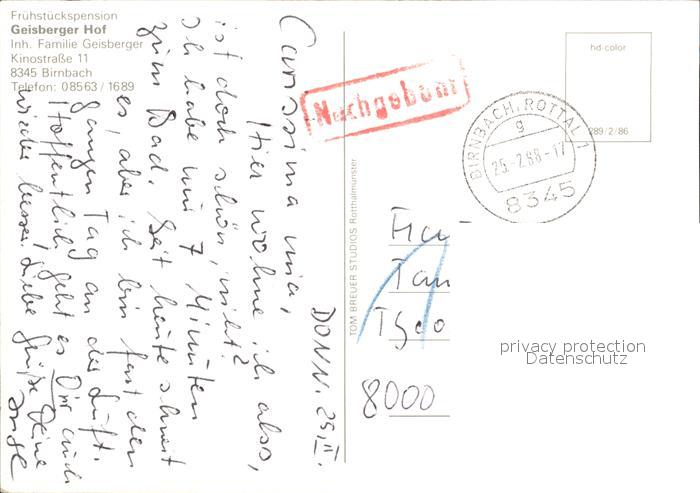 Frühstückspension
Geisberger Hof
Inh. Familie Geisberger
Kinostraße 11
8345 Birnbach
Telefon: 08563 / 1689
DONN. 25.II.
Carissima mia,
Hier wohne ich also,
ist doch schön, nicht?
Ich habe nur 7 Minuten
zum Bad. Seit heute schneit
es, aber ich bin fast den
ganzen Tag an der Luft.
Hoffentlich geht es Dir auch
wieder besser! Liebe Grüße Deine
Inge
TOM BREUER STUDIOS Rotthalmünster
Nachgebühr
BIRNBACH, ROTTAL 1
g
25.-2.88-17
8345
hd-color
289/2/86
8000
privacy protection
Datenschutz